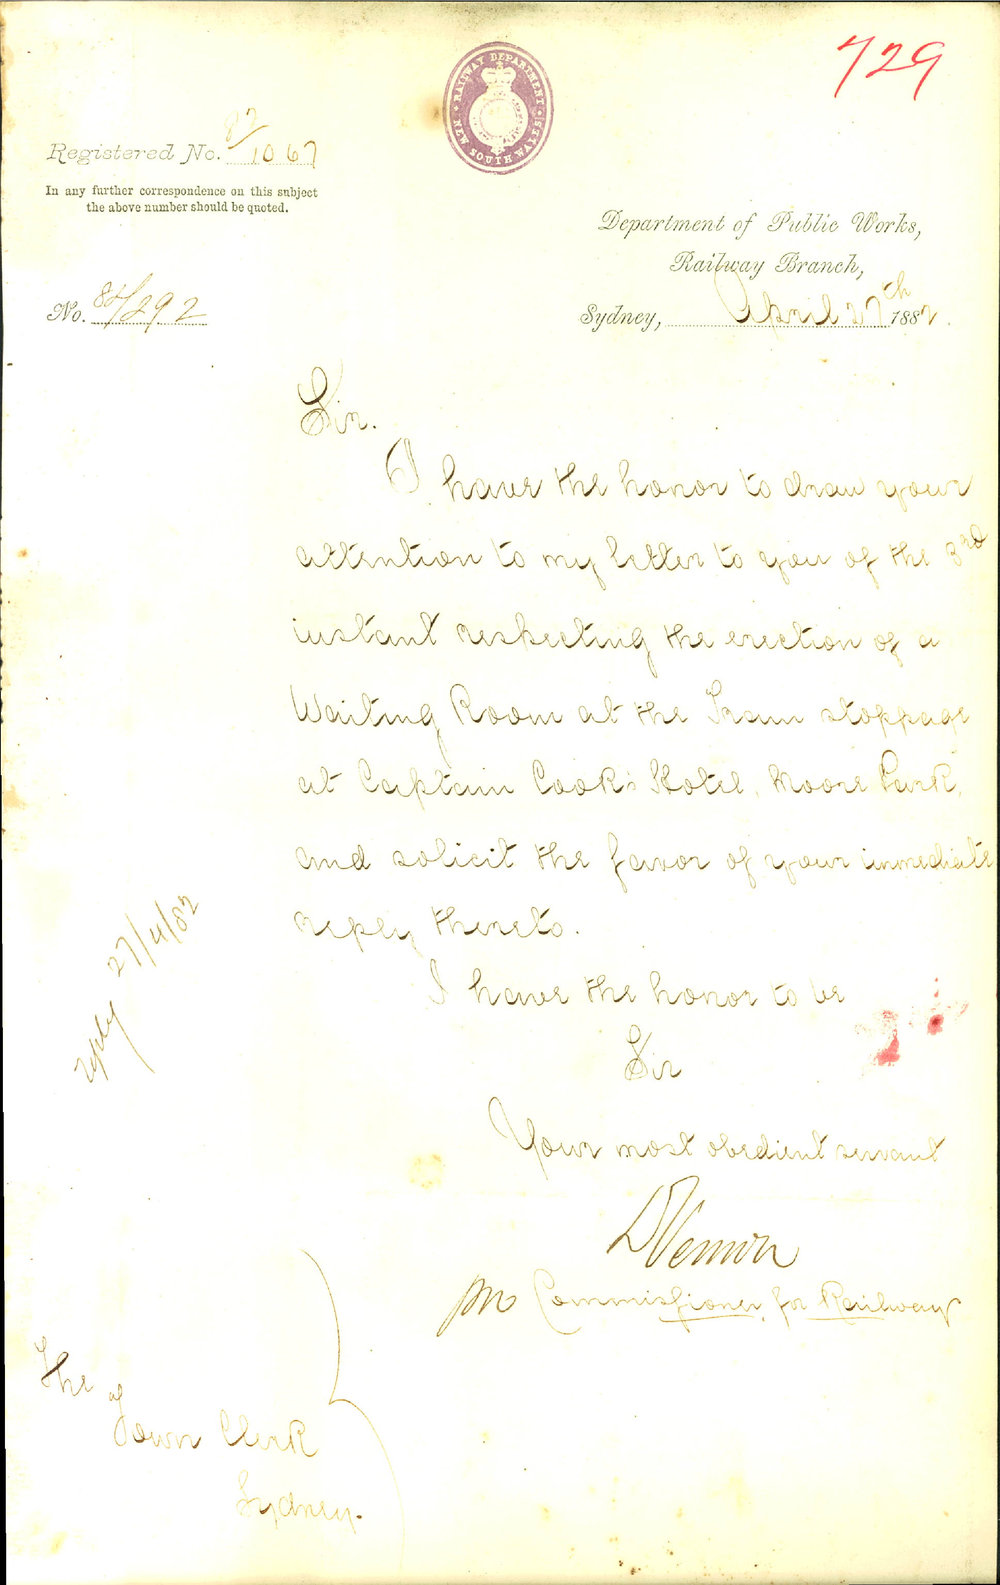 729
RAILWAY DEPARTMENT
NEW SOUTH WALES
Registered No. 82/1067
In any further correspondence on this subject
the above number should be quoted.
Department of Public Works,
Railway Branch,
No. 82/292
Sydney, April 27th 1882
Sir.
I have the honor to draw your
attention to my letter to you of the 3rd
instant respecting the erection of a
Waiting Room at the Tram stoppage
at Captain Cook's Hotel, Moore Park,
and solicit the favor of your immediate
reply thereto.
I have the honor to be
Sir
Your most obedient servant
DVernon
pro Commissioner for Railways
reply 27/4/82
The
Town Clerk
Sydney.